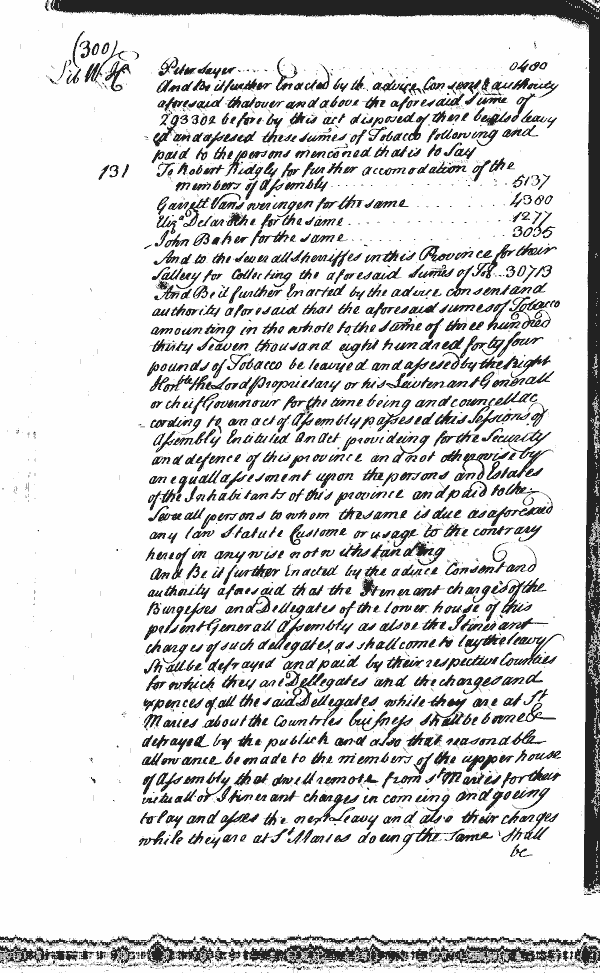 (300)
Lib W H
Peter Sayer 0480
And Be it further Enacted by th advice Consent & authority
aforesaid that over and above the aforesaid Sume of
293302 before by this act disposed of there be also leavy
ed and assesed these sumes of Tobacco following and
paid to the persons mencōned that is to Say
131 To Robert Ridgly for further accomodation of the
members of assembly 5137
Garrett Vansweringen for the same 4380
Eliza Delaroche for the same 1277
John Baker for the same 3035
And to the severall Sherriffes in this Province for their
Sallery for Collecting the aforesaid Sumes of Tob. 30713
And Be it further Enacted by the advice consent and
authority aforesaid that the aforesaid sumes of Tobacco
amounting in the whole to the same of three hundred
thirty seaven thousand eight hundred forty four
pounds of Tobacco be leavyed and assesed by the Right
Honble the Lord Proprietary or his Lieutenant Generall
or cheif Governour for the time being and councell ac
cording to an act of Assembly passed this Sessions of
Assembly Entituled An Act provideing for the Security
and defence of this province and not otherwise by
an equall assesment upon the persons and Estates
of the Inhabitants of this province and paid to the
Severall persons to whom the same is due as aforesaid
any law Statute Custome or usage to the contrary
hereof in any wise notwithstanding
And Be it further Enacted by the advice Consent and
authority aforesaid that the Itinerant charges of the
Burgesses and Dellegates of the lower house of this
present Generall Assembly as alsoe the Itinerant
charges of such delegates, as shall come to lay the leavy
Shall be defrayed and paid by their respective Counties
for which they are Dellegates and the charges and
expences of all the said Dellegates while they are at St
Maries about the Countries buisness shall be borne &
defrayed by the publick and also that reasonable
allowance be made to the members of the upper house
of Assembly that dwell remote from St Maries for their
victuall or Itinerant charges in comeing and goeing
to lay and asses the next Leavy and also their charges
while they are at St Maries doeing the Same Shall
be